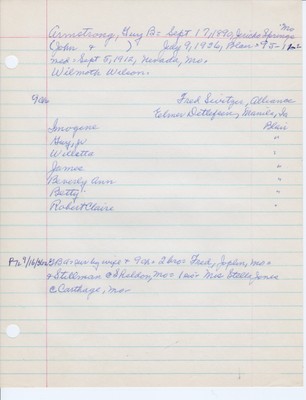 Armstrong, Guy B = Sept 17, 1890 Jerico Springs Mo
(John & ) July 9, 1956, Blair = 95-1
md = Sept 5, 1912, Nevada, Mo.
Wilmoth Wilson.
9 ch Fred Switzer, Alliance
Elmer Detlefsen, Manila, Ia
Imogene Blair
Guy, Jr "
Willetta "
James "
Beverly Ann "
Betty "
Robert Claire "
GB = sur by wife + 9 ch = 2 bros Fred, Joplin, Mo +
+ Stillman @ Sheldon, Mo = 1 sis = Mrs Estelle Jones
@ Carthage, Mo.